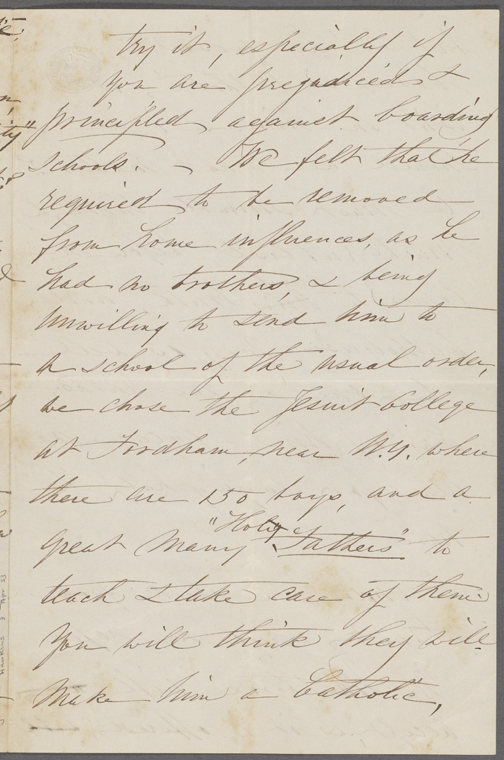 try it, especially if
you are prejudiced &
principled against boarding
schools. — We felt that he
required to be removed
from home influences, as he
had no brothers, & being
unwilling to send him to
a school of the usual order,
we chose the Jesuit College
at Fordham, near N.Y. where
there are 150 boys, and a
great many "Holy Fathers" to
teach & take care of them.
You will think they will
make him a Catholic,